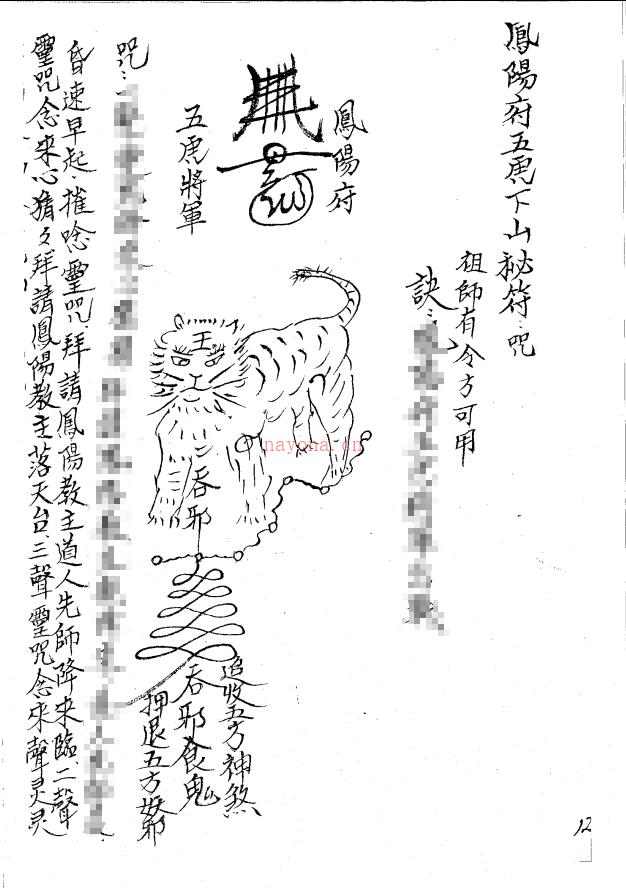 鳳陽府五虎下山秘符:咒
祖師有令方可用
訣:
鳳陽府
五虎將軍
王
吞邪
追收五方神煞
吞邪食鬼
押退五方妖邪
咒:
昏速早起:摧唸靈咒、拜請鳳陽教主道人先師降來臨、二聲
靈咒念來心猜々拜請鳳陽教主落天台、三聲靈咒念來聲灵灵
nayona.cn
12